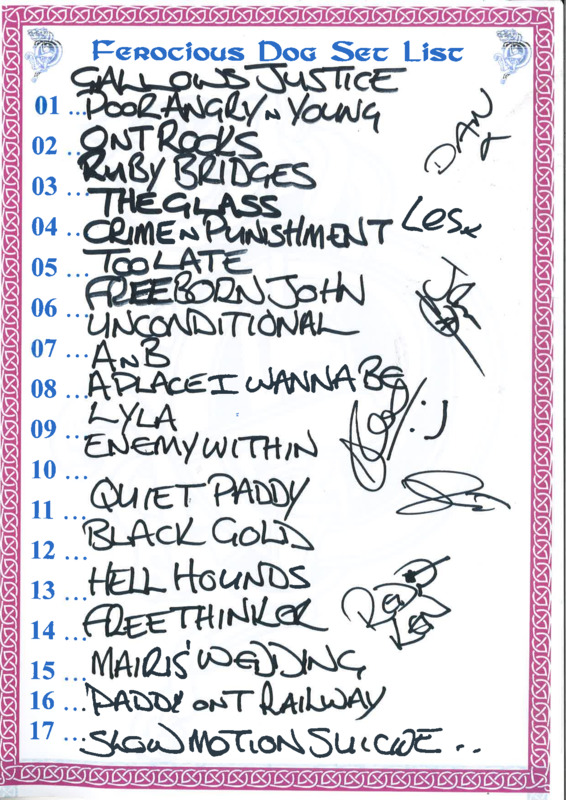 Ferocious Dog Set List
GALLOWS JUSTICE
01 ... POOR ANGRY N YOUNG
02 ... ONT ROCKS
RUBY BRIDGES
03 ... THE GLASS
04 ... CRIME N PUNISHMENT
05 ... TOO LATE
FREEBORN JOHN
06 ... UNCONDITIONAL
07 ... A N B
08 ... A PLACE I WANNA BE
LYLA
09 ... ENEMY WITHIN
10 ...
QUIET PADDY
11 ...
BLACK GOLD
12 ...
HELL HOUNDS
13 ...
FREETHINKER
14 ...
MAIRIS' WEDDING
15 ...
16 ... 'PADDY' ONT RAILWAY
17 ... SLOW MOTION SUICIDE ..
DAN
LES x
:J